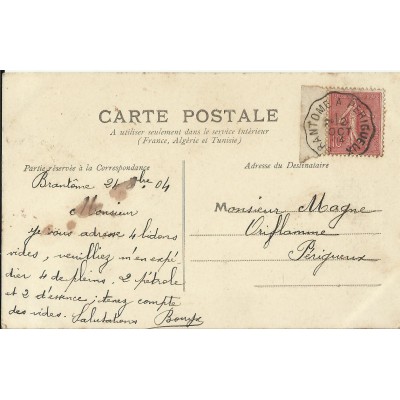 CARTE POSTALE
A utiliser seulement dans le service intérieur
(France, Algérie et Tunisie)
Partie réservée à la Correspondance
Adresse du Destinataire
Brantôme 21 8bre 04
Monsieur
Je vous adresse 4 bidons
vides, veuilliez m'en expé
dier 4 de pleins. 2 pétrole
et 2 d'essence; tenez compte
des vides. Salutations
Monsieur Magne
Oriflamme
Périgueux
BRANTOME A PERIGUEUX
OCT
04